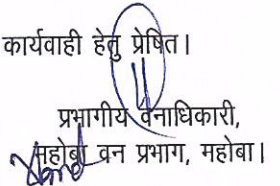 कार्यवाही हेतु प्रेषित।
प्रभागीय वनाधिकारी,
महोबा वन प्रभाग, महोबा।